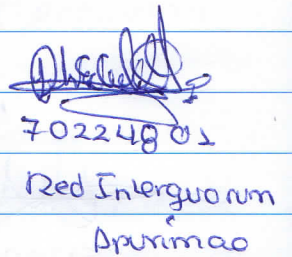 70224801
Red Interquorum
Apurimac